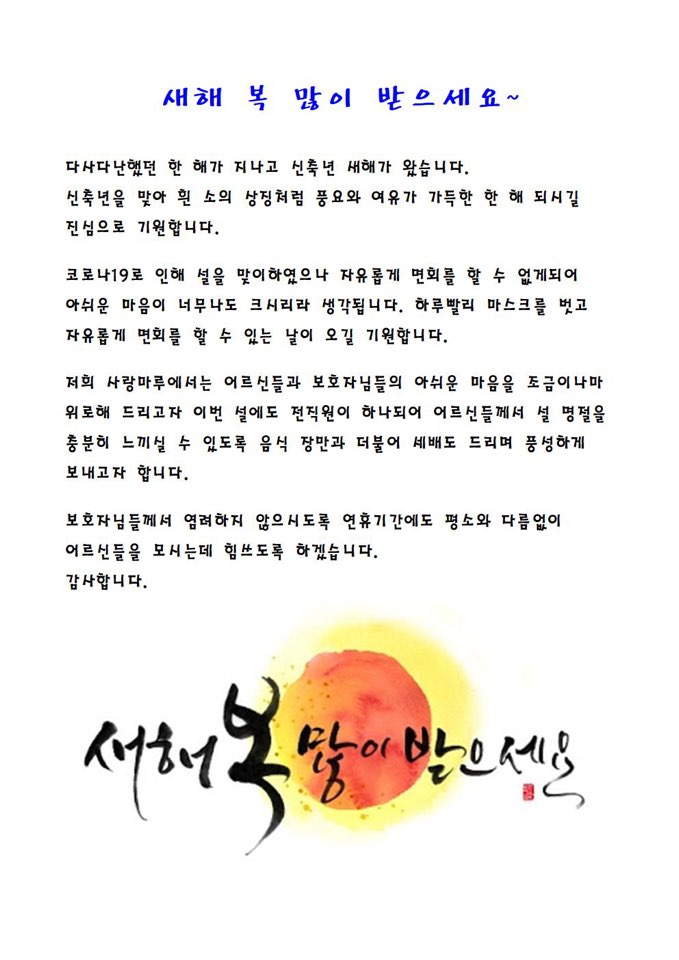 새해 복 많이 받으세요~
다사다난했던 한 해가 지나고 신축년 새해가 왔습니다.
신축년을 맞아 흰 소의 상징처럼 풍요와 여유가 가득한 한 해 되시길
진심으로 기원합니다.
코로나19로 인해 설을 맞이하였으나 자유롭게 면회를 할 수 없게되어
아쉬운 마음이 너무나도 크시리라 생각됩니다. 하루빨리 마스크를 벗고
자유롭게 면회를 할 수 있는 날이 오길 기원합니다.
저희 사랑마루에서는 어르신들과 보호자님들의 아쉬운 마음을 조금이나마
위로해 드리고자 이번 설에도 전직원이 하나되어 어르신들께서 설 명절을
충분히 느끼실 수 있도록 음식 장만과 더불어 세배도 드리며 풍성하게
보내고자 합니다.
보호자님들께서 염려하지 않으시도록 연휴기간에도 평소와 다름없이
어르신들을 모시는데 힘쓰도록 하겠습니다.
감사합니다.
새해 복 많이 받으세요